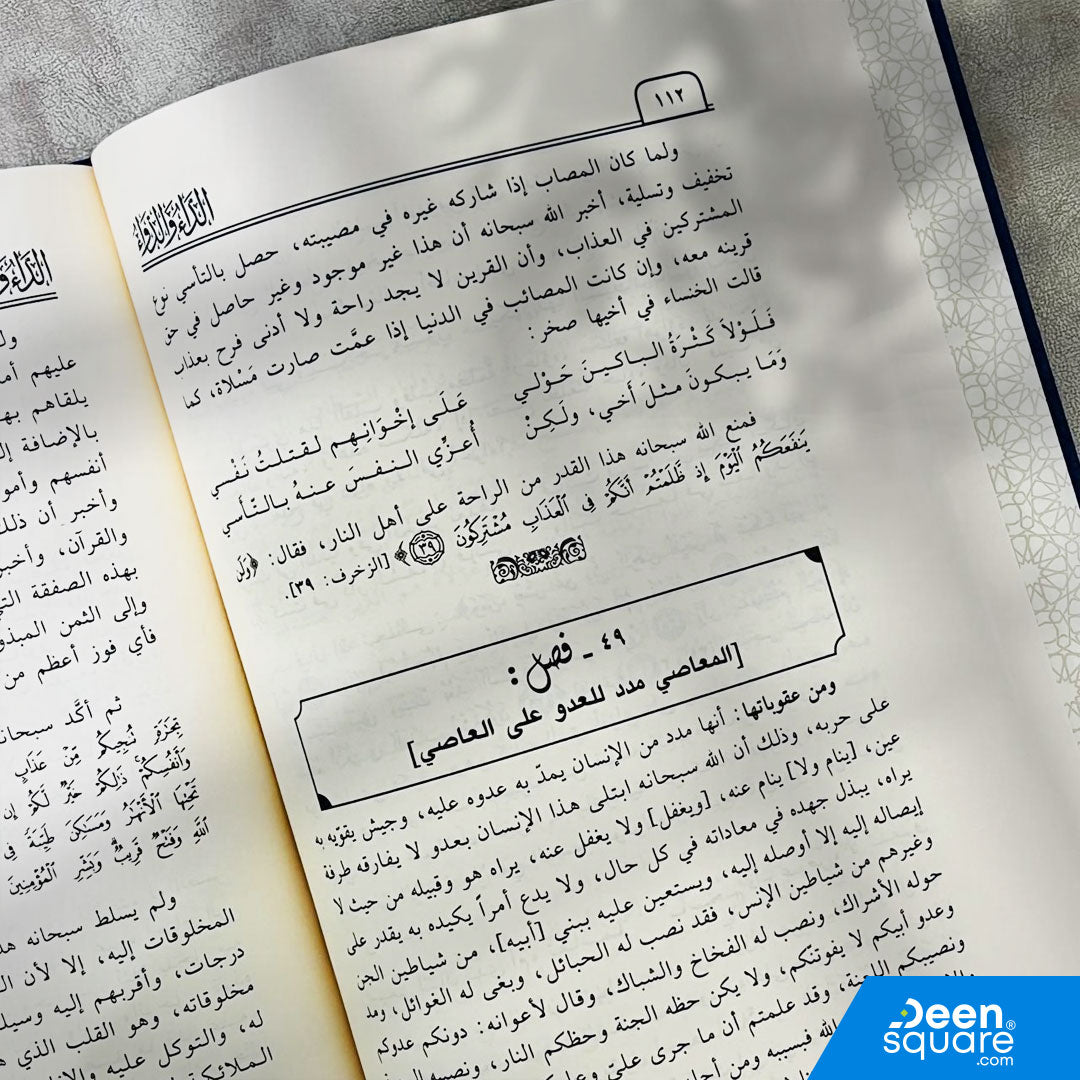 ١١٢
الدَّاءُ وَالدَّوَاءُ
ولما كان المصاب إذا شاركه غيره في مصيبته، حصل بالتأسي نوع
تخفيف وتسلية، أخبر الله سبحانه أن هذا غير موجود وغير حاصل في حق
المشتركين في العذاب، وأن القرين لا يجد راحة ولا أدنى فرح بعذاب
قرينه معه، وإن كانت المصائب في الدنيا إذا عمَّت صارت مَسْلاة، كما
قالت الخنساء في أخيها صخر:
فَلَوْلاَ كَثْرَةُ الباكينَ حَوْلي عَلَى إخْوَانِهِم لقتلتُ نَفْسي
وَمَا يبكونَ مثلَ أخي، ولَكِنْ أُعزِّي النفسَ عنهُ بالتَّأسي
فمنع الله سبحانه هذا القدر من الراحة على أهل النار، فقال: ﴿وَلَن
يَنفَعَكُمُ ٱلْيَوْمَ إِذ ظَّلَمْتُمْ أَنَّكُمْ فِى ٱلْعَذَابِ مُشْتَرِكُونَ ٣٩﴾ [الزخرف: ٣٩].
٤٩ ـ فصل:
[المعاصي مدد للعدو على العاصي]
ومن عقوباتها: أنها مدد من الإنسان يمدّ به عدوه عليه، وجيش يقوّيه به
على حربه، وذلك أن الله سبحانه ابتلى هذا الإنسان بعدو لا يفارقه طرفة
عين، [ينام ولا] ينام عنه، [ويغفل] ولا يغفل عنه، يراه هو وقبيله من حيث لا
يراه، يبذل جهده في معاداته في كل حال، ولا يدع أمراً يكيده به يقدر على
إيصاله إليه إلا أوصله إليه، ويستعين عليه ببني [أبيه]، من شياطين الجن
وغيرهم من شياطين الإنس، فقد نصب له الحبائل، وبغى له الغوائل، ومد
حوله الأشراك، ونصب له الفخاخ والشباك، وقال لأعوانه: دونكم عدوكم
وعدو أبيكم لا يفوتنكم، ولا يكن حظه الجنة وحظكم النار، ونصيبه
ونصيبكم اللعنة، وقد علمتم أن ما جرى عليّ
الله فبسببه ومن
عليهم
يلقاهم
بالإضافة
أنفسهم
وأخبر أن ذلك
والقرآن، وأخبر
بهذه الصفقة
وإلى الثمن
فأي فوز أعظم من
ثم أكَّد
تِجَٰرَةٍ تُنجِيكُم مِّنْ عَذَابٍ
وَأَنفُسِكُمْ ذَٰلِكُمْ خَيْرٌ لَّكُمْ إِن
تَحْتِهَا ٱلْأَنْهَٰرُ وَمَسَٰكِنَ طَيِّبَةً فِى
ٱللَّهِ وَفَتْحٌ قَرِيبٌ وَبَشِّرِ ٱلْمُؤْمِنِينَ
ولم يسلط سبحانه
المخلوقات إليه، إلا لأن
درجات، وأقربهم إليه
مخلوقاته، وهو القلب الذي
له، والتوكل عليه
Deen
square®
.com